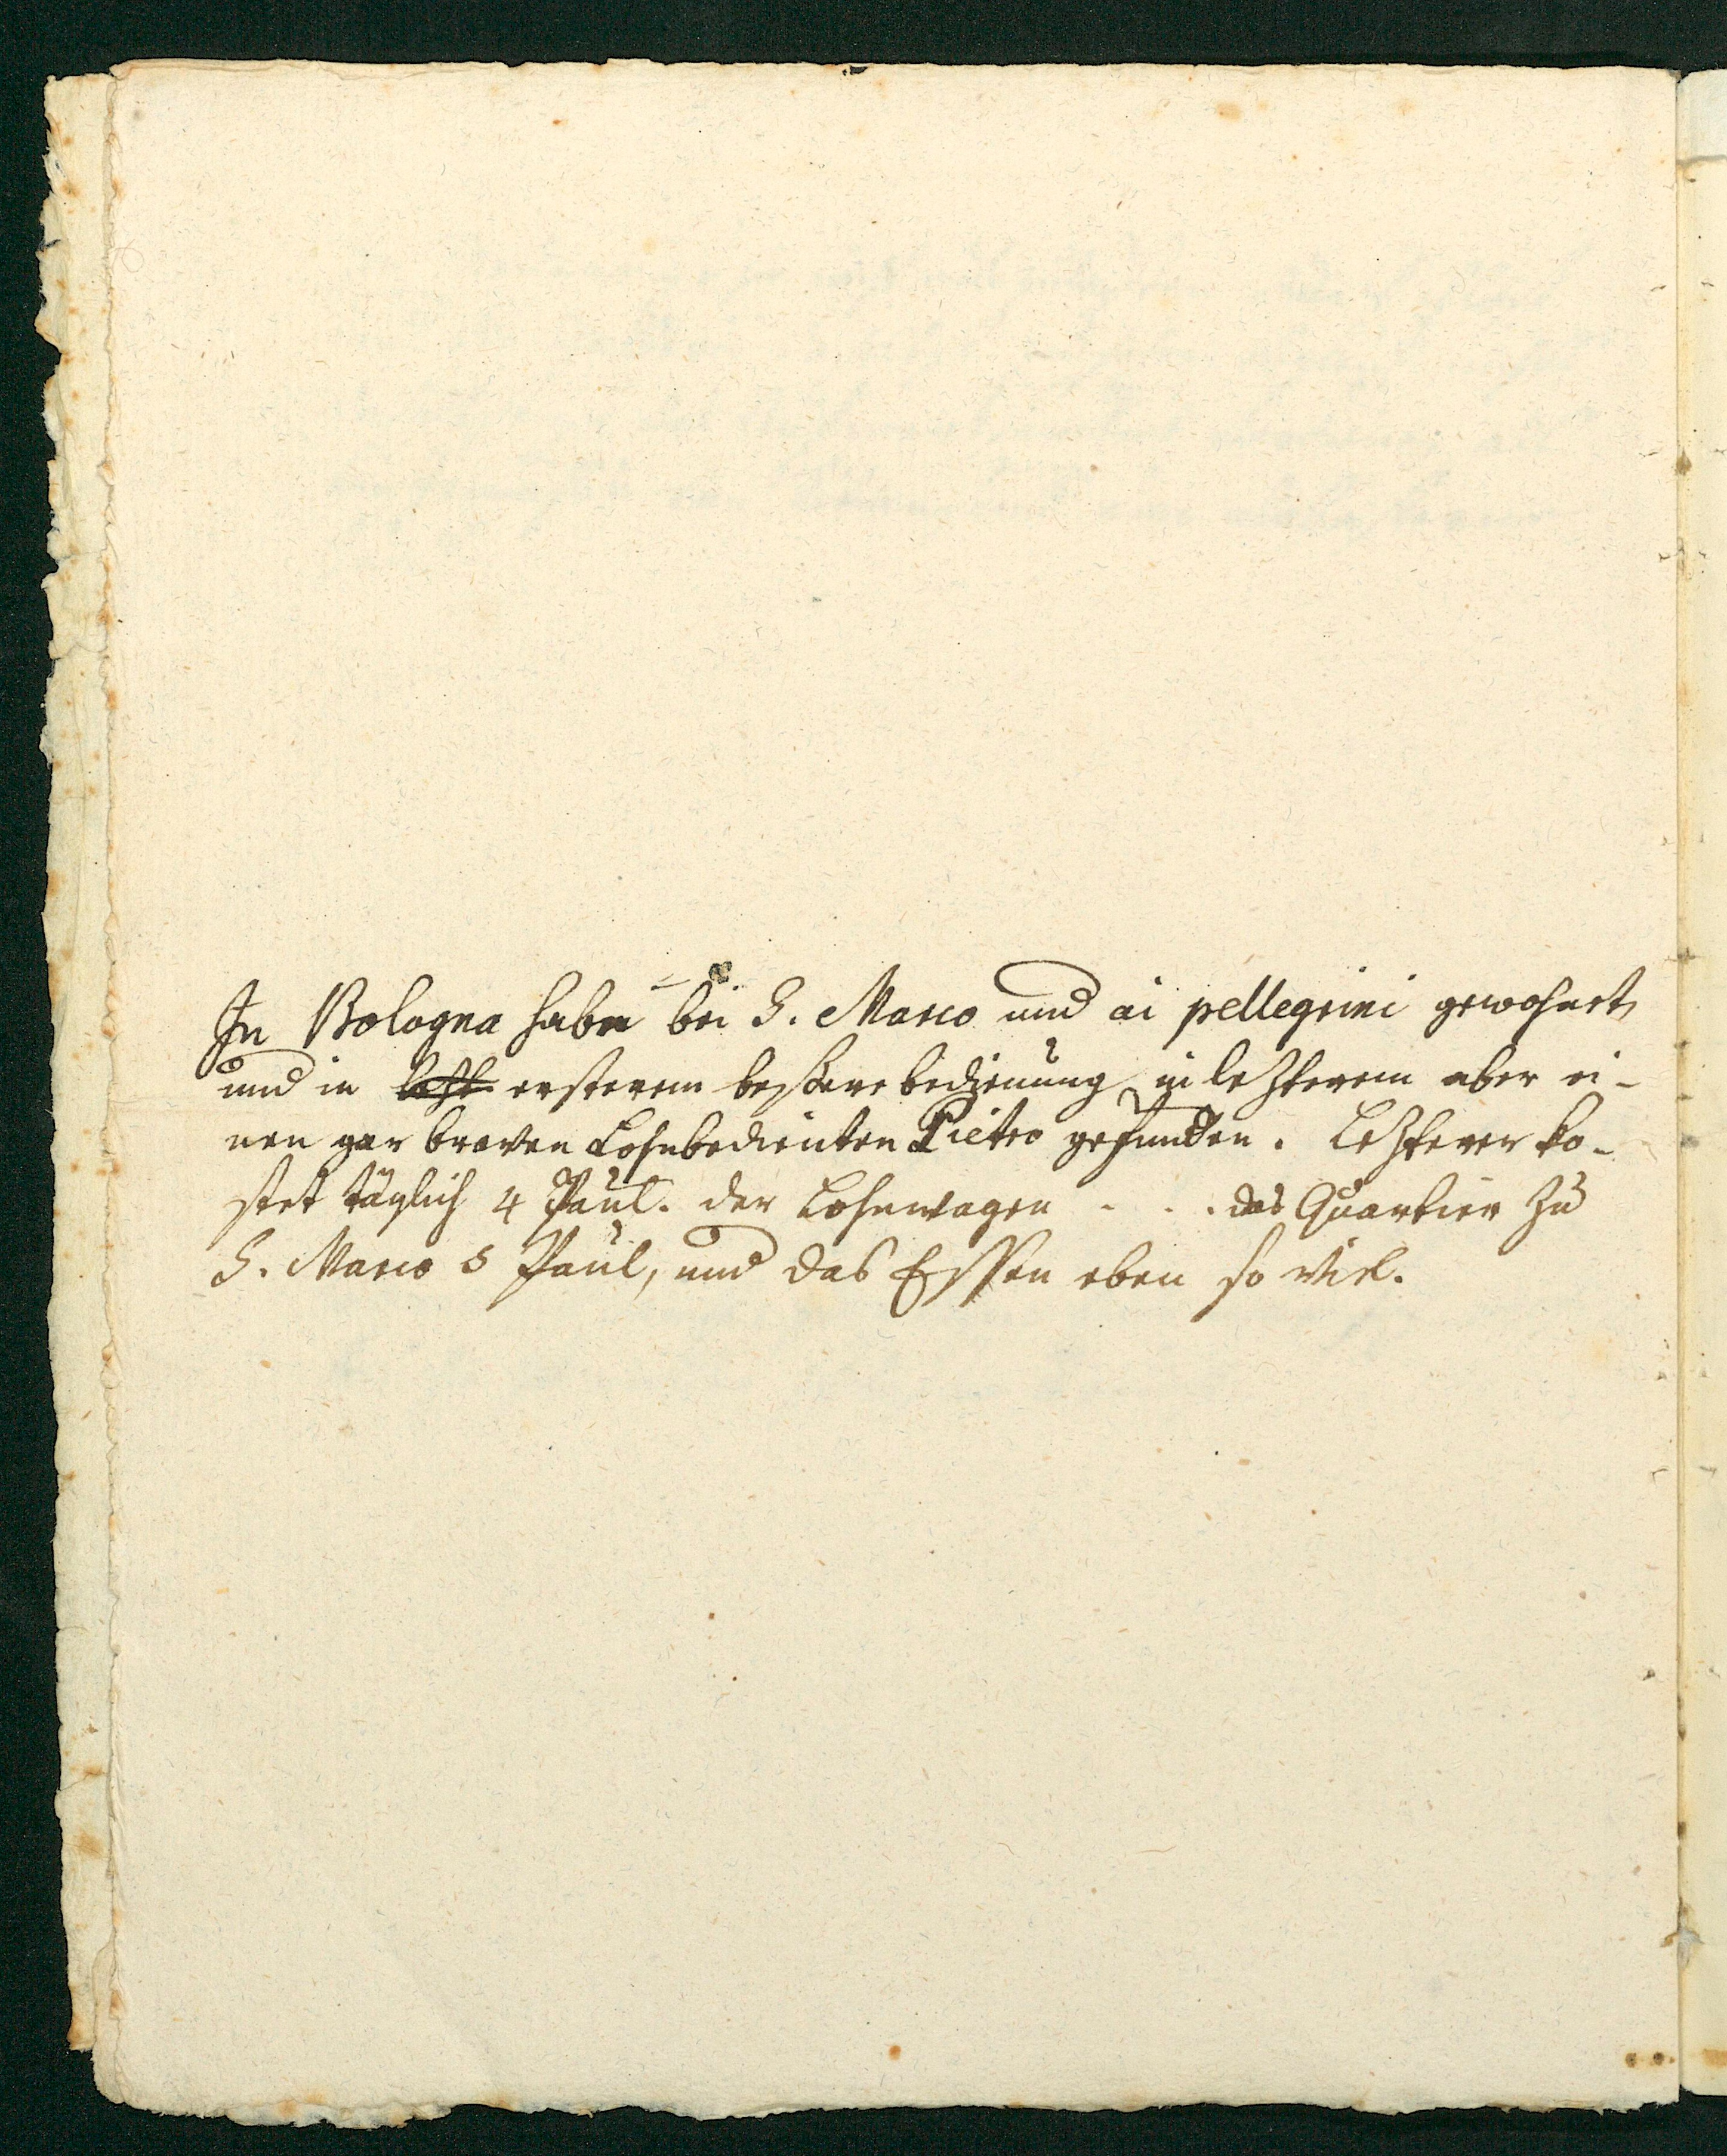 In Bologna haben bei S. Marco und ai pellegrini gewohnet,
und in lezt ersterem beßere bedienung, in lezterem aber ei-
nen gar braven Lohnbedienten Pietro gefunden. Lezterer ko-
stet täglich 4 Paul. der Lohnwagen . . . das Quartier zu
S. Marco 5 Paul, und das Essen eben so viel.